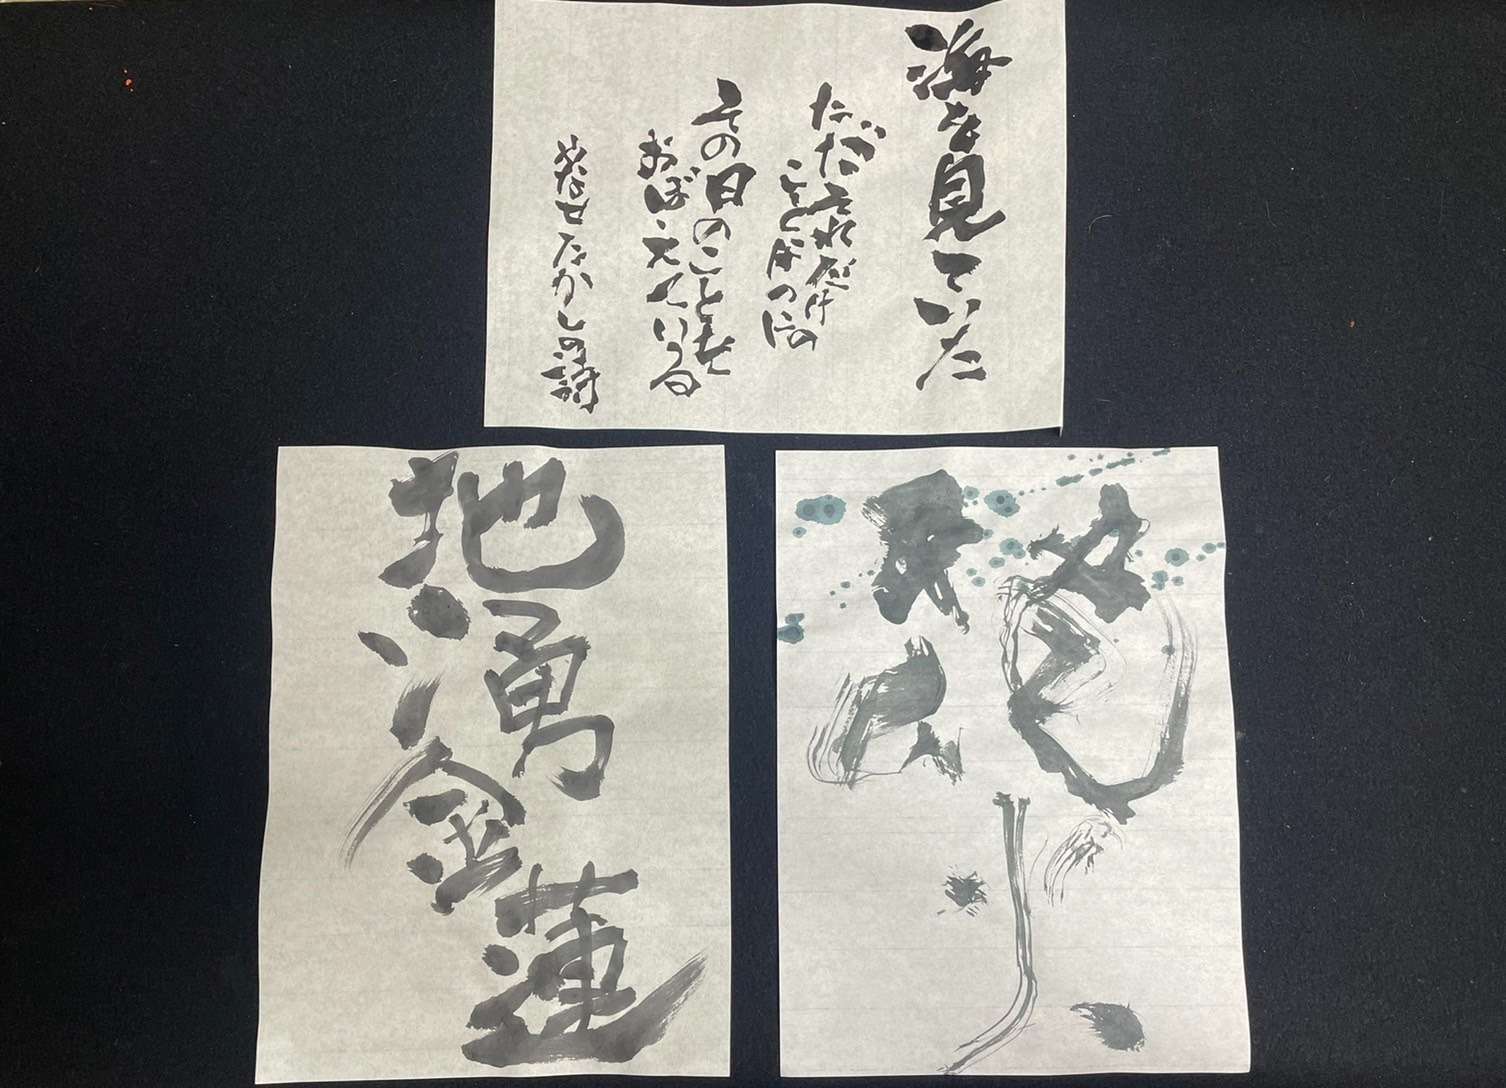 海を見ていた
ただそれだけの
ことなのに
その日のことを
おぼえている
やなせたかしの詩
地湧金蓮